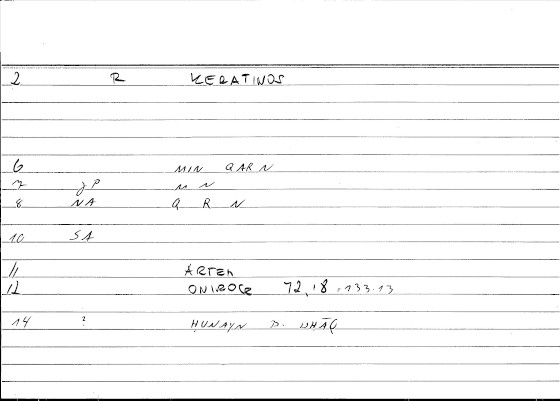 2 R KERATINOS
6 MIN QARN
7 gP M N
8 NA Q R N
10 SA
11 ARTEM
12 ONIROCR 72,18 = 133.13
14 ? ḤUNAYN D.